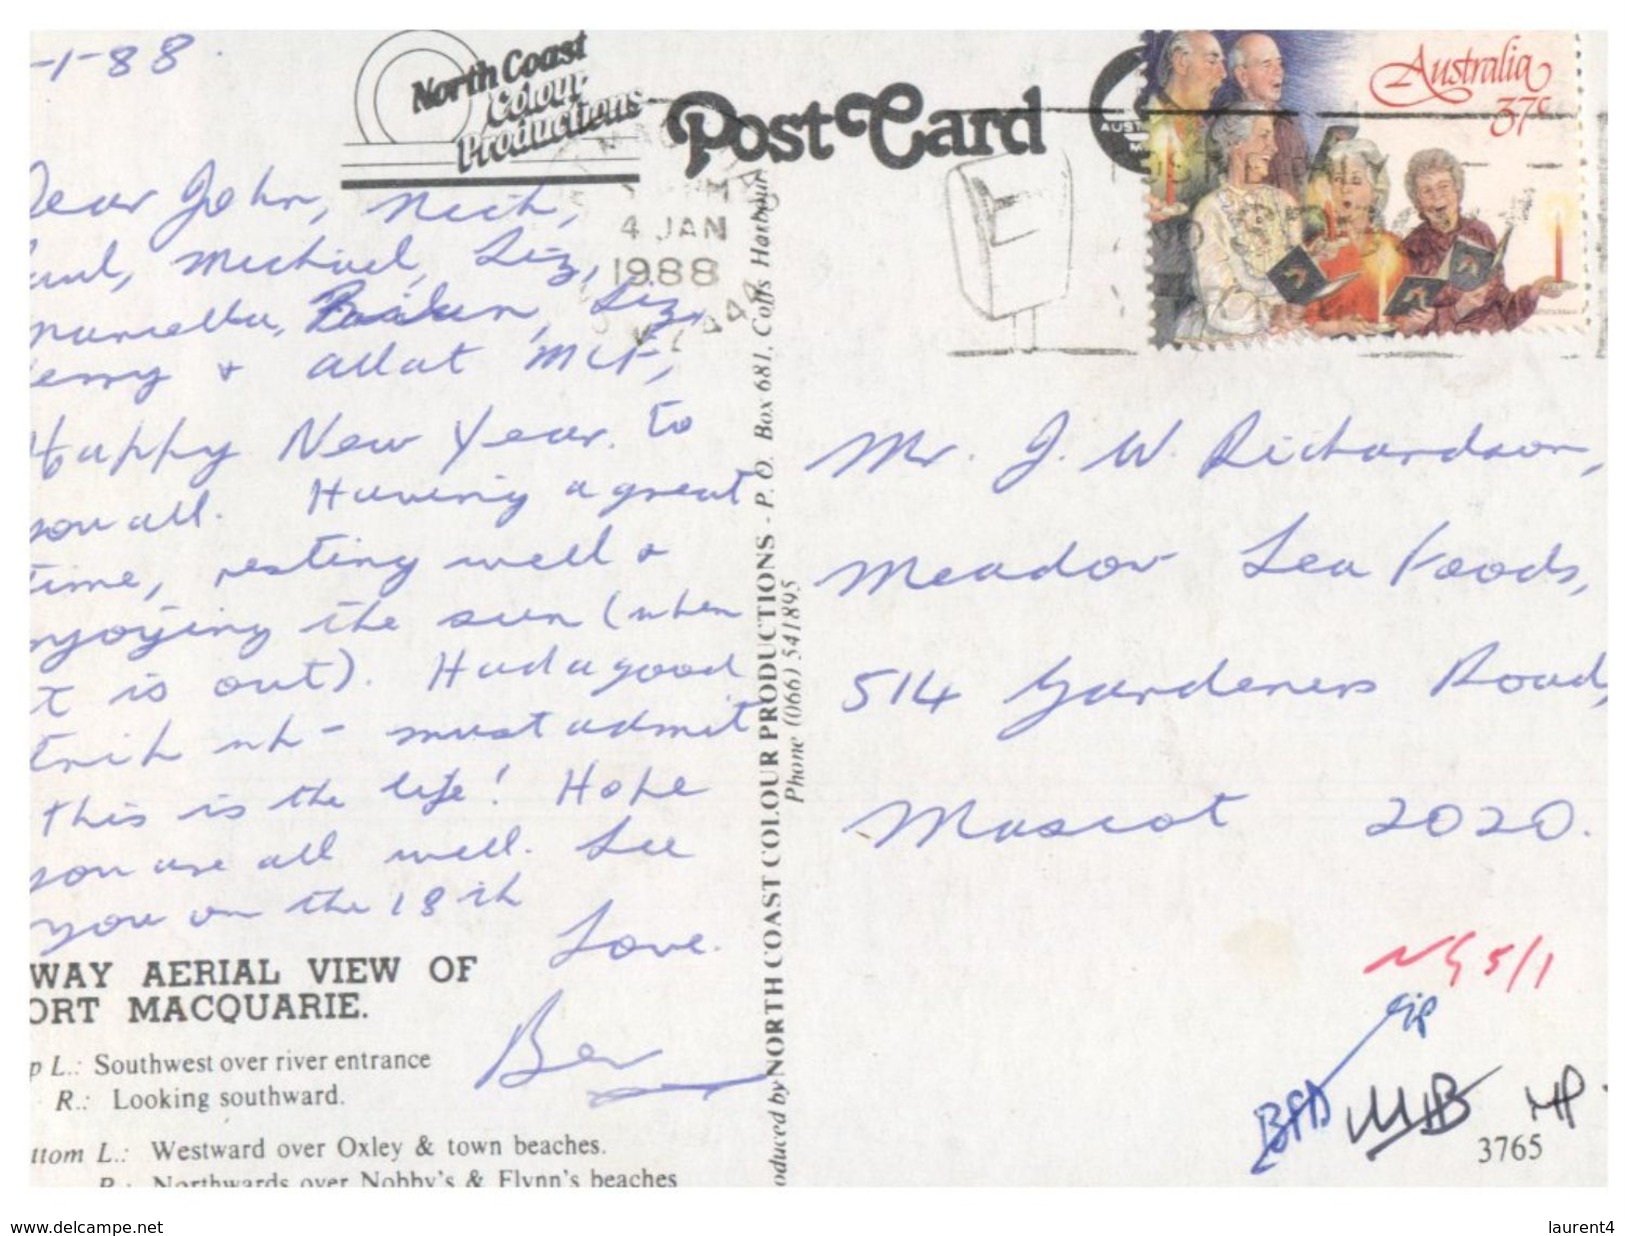 -1-88.
North Coast
Colour
Productions
Post Card
Australia
37c
4 JAN
1988
Dear John, Nick,
Paul, Michael, Liz,
Marcella, Liz,
Terry & all at MLF,
Happy New Year to
you all. Having a great
time, resting well &
enjoying the sun (when
it is out). Had a good
trip up - must admit
this is the life! Hope
you are all well. See
you on the 18th
Love.
Ben
WAY AERIAL VIEW OF
ORT MACQUARIE.
p L.: Southwest over river entrance
R.: Looking southward.
ttom L.: Westward over Oxley & town beaches.
R.: Northwards over Nobby's & Flynn's beaches
oduced by NORTH COAST COLOUR PRODUCTIONS - P.O. Box 681, Coffs Harbour
Phone (066) 541895
Mr. J. W. Richardson,
Meadow Lea Foods,
514 Gardeners Road,
Mascot 2020.
NG 5/1
MP.
3765
www.delcampe.net
laurent4